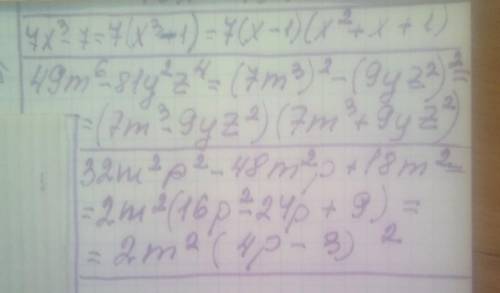 7x³-7=7(x³-1)=7(x-1)(x²+x+1)
49m⁶-81y²z⁴=(7m³)²-(9yz²)²=
=(7m³-9yz²)(7m³+9yz²)
32m²p²-48m²p+18m²=
=2m²(16p²-24p+9)=
=2m²(4p-3)²